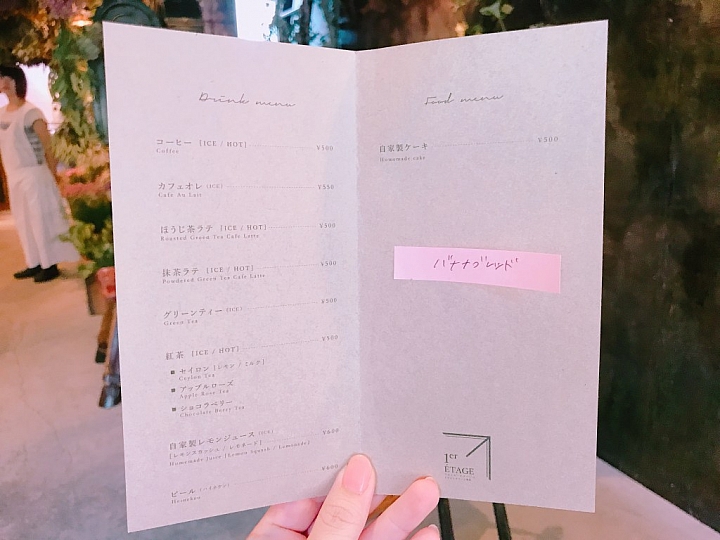 Drink menu
コーヒー [ICE / HOT] ¥500
Coffee
カフェオレ (ICE) ¥550
Café Au Lait
ほうじ茶ラテ [ICE / HOT] ¥500
Roasted Green Tea Cafe Latte
抹茶ラテ [ICE / HOT] ¥500
Powdered Green Tea Cafe Latte
グリーンティー (ICE) ¥500
Green Tea
紅茶 [ICE / HOT] ¥500
■ セイロン [レモン / ミルク]
Ceylon Tea
■ アップルローズ
Apple Rose Tea
■ ショコラベリー
Chocolate Berry Tea
自家製レモンジュース (ICE) ¥600
[レモンスカッシュ / レモネード]
Homemade Juice [Lemon Squash / Lemonade]
ビール ¥600
Heineken
Food menu
自家製ケーキ ¥500
Homemade cake
バナナブレッド
1er
ÉTAGE